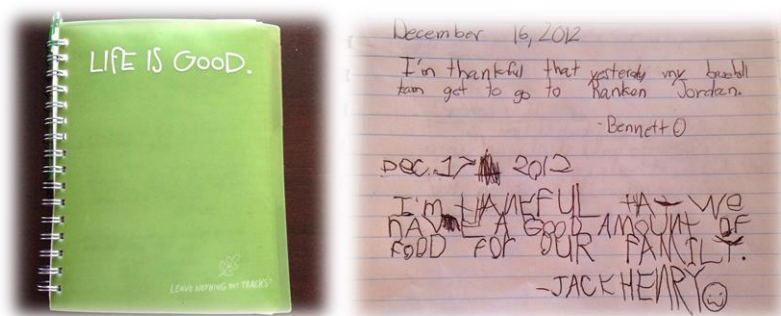 LIFE IS GOOD.
LEAVE NOTHING BUT TRACKS
December 16, 2012
I'm thankful that yesterday my baseball
team got to go to Rankon Jordan.
-Bennett
DEC. 17 2012
I'm THANEFUL THAT WE
HAVE A GOOD AMOUNT OF
FOOD FOR OUR FAMILY.
-JACK HENRY